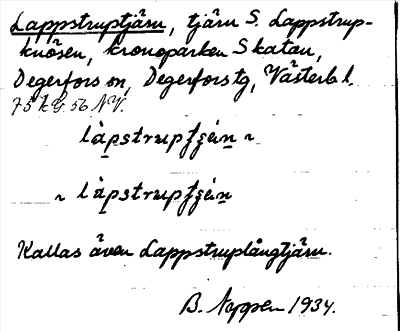 Lappstruptjärn, tjärn S. Lappstrup-
knösen, kronoparken Skatan,
Degerfors sn, Degerfors tg, Västerb l.
75 kG. 56. NV.
Kallas även Lappstruplångtjärn.
B. Nyppen 1934.